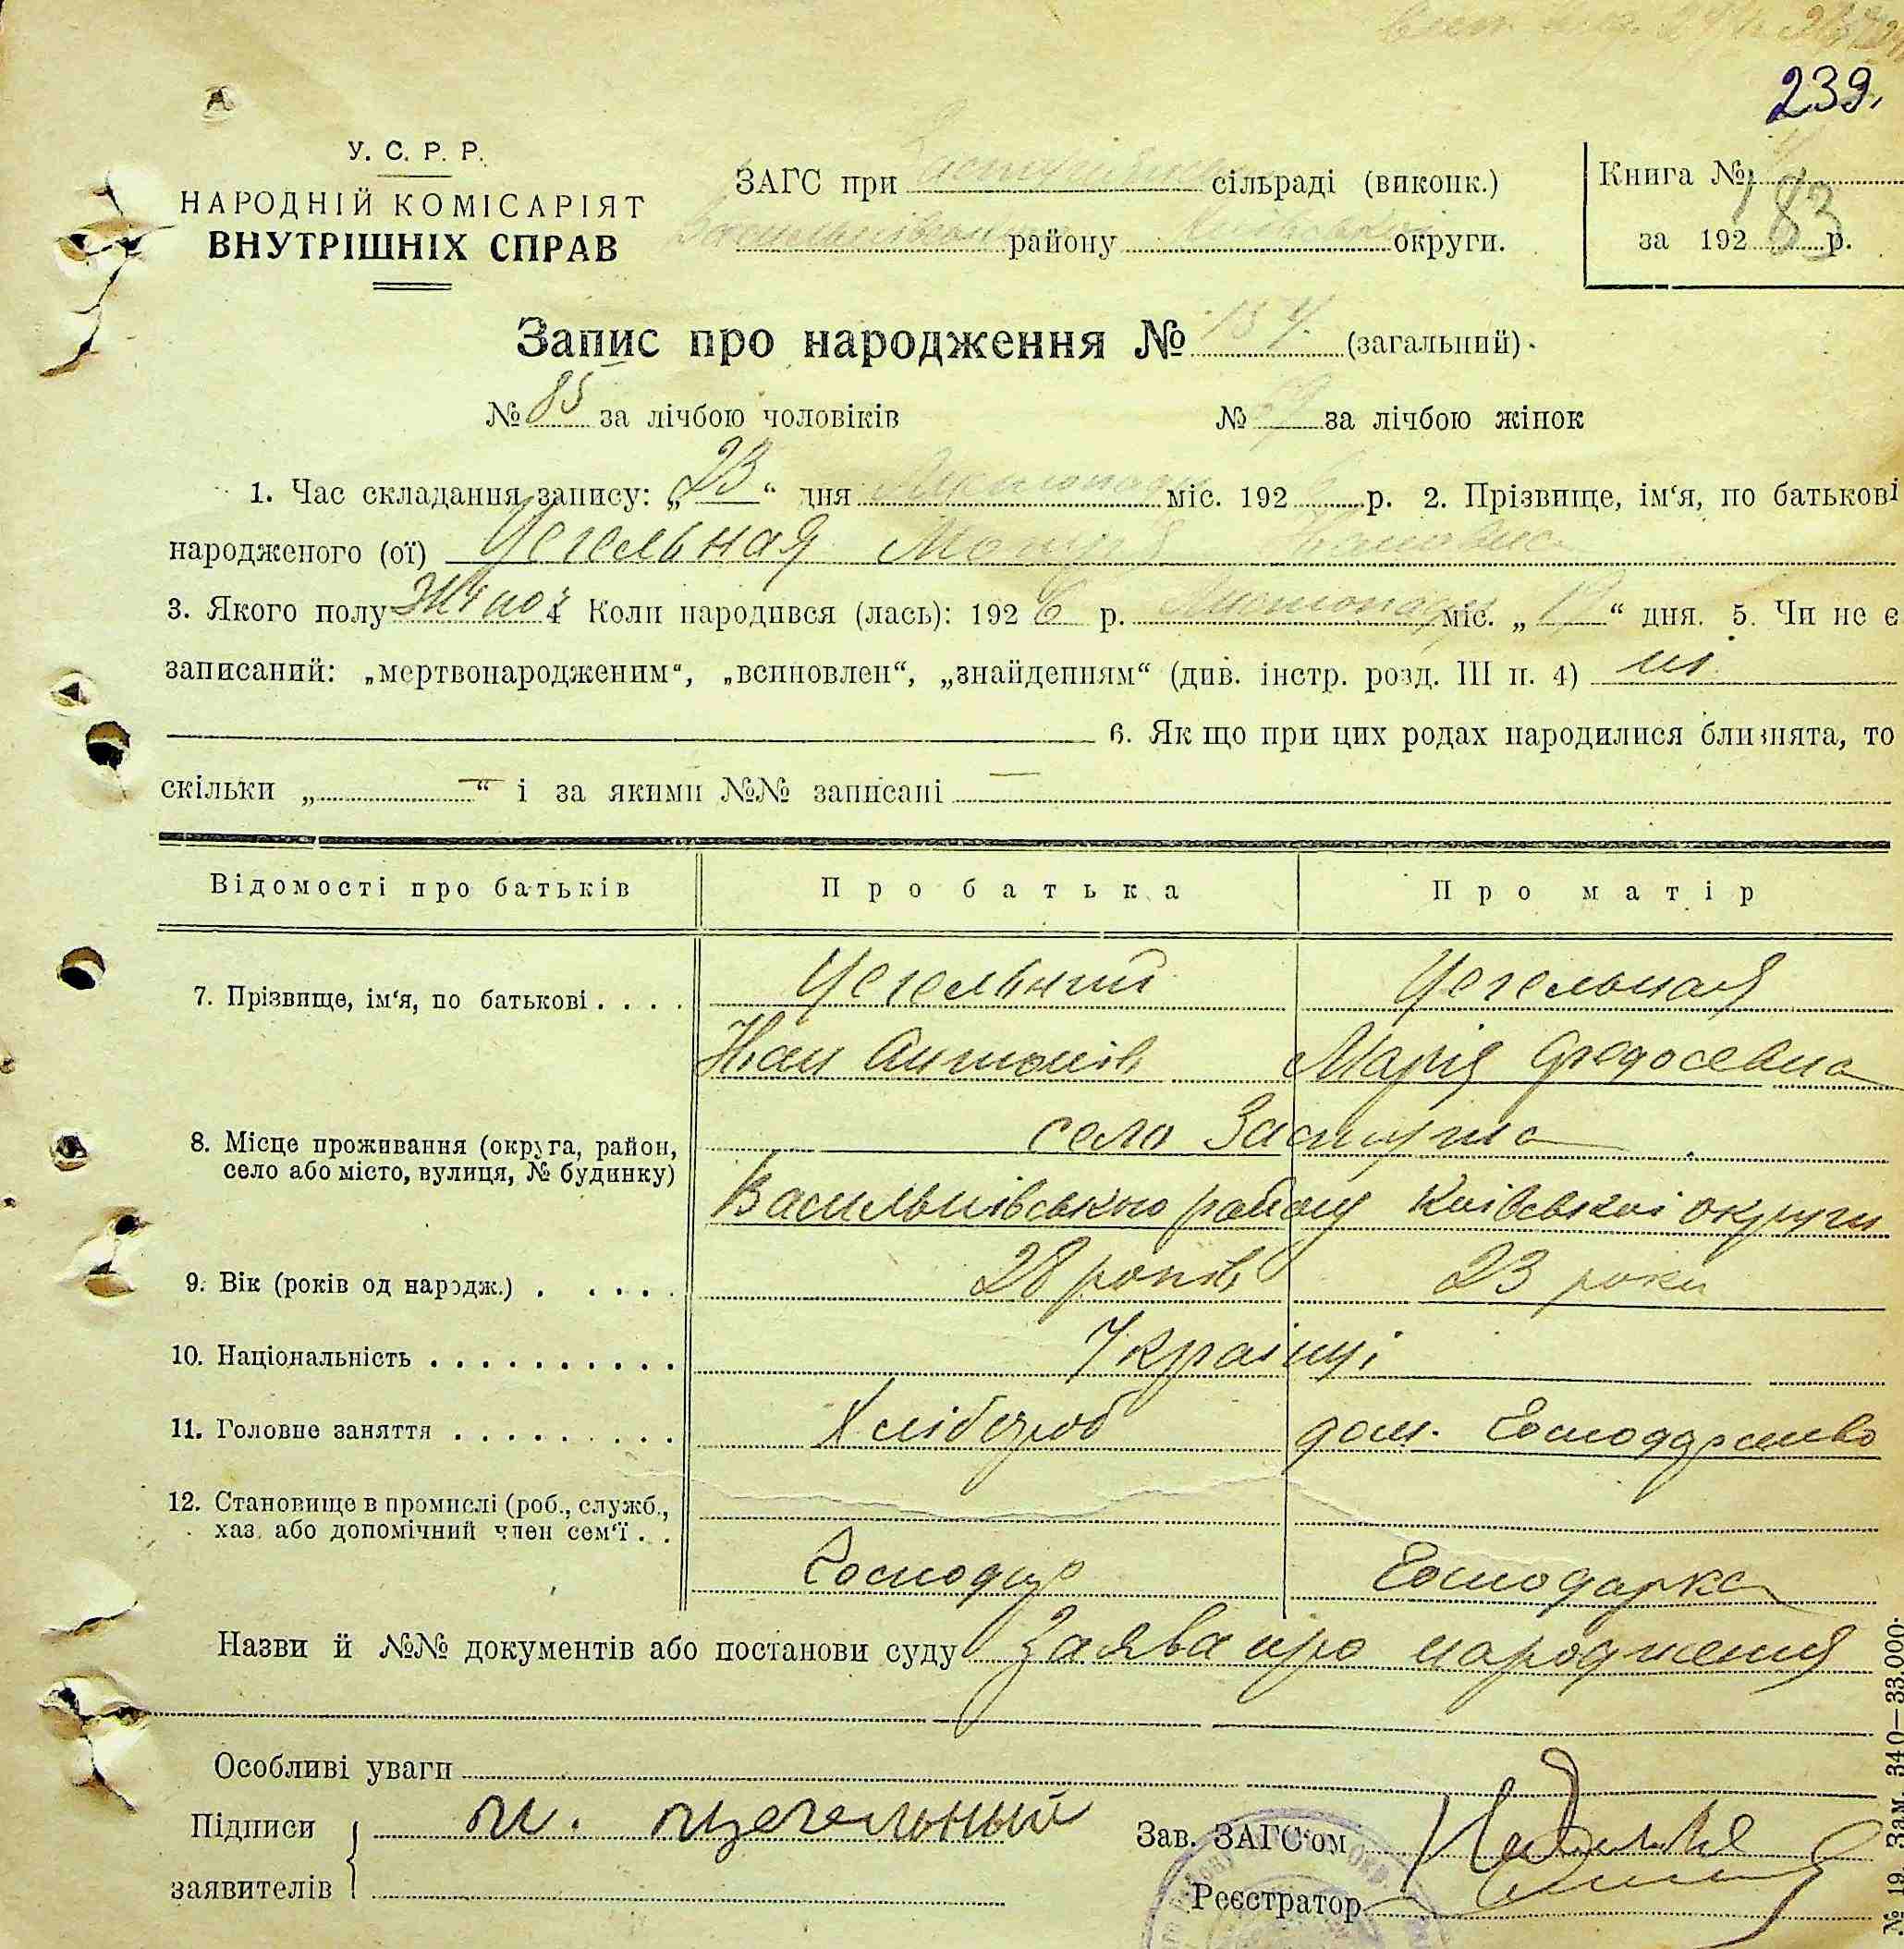 239.
У. С. Р. Р.
НАРОДНІЙ КОМІСАРІЯТ
ВНУТРІШНІХ СПРАВ
ЗАГС при сільраді (виконк.)
району округи.
Книга №
183
за 192 р.
Запис про народження № 154. (загальний)
№ 85 за лічбою чоловіків № 69 за лічбою жінок
1. Час складання запису: „23“ дня Листопада міс. 1926 р. 2. Прізвище, ім‘я, по батькові
народженого (ої) Цегельная Ивановна
3. Якого полу жіноч 4 Коли народився (лась): 1926 р. Листопаду міс. „19“ дня. 5. Чи не є
записаний: „мертвонародженим“, „всиновлен“, „знайденням“ (див. інстр. розд. III п. 4) ні
6. Як що при цих родах народилися близнята, то
скільки „ — “ і за якими №№ записані —
Відомості про батьків Про батька Про матір
7. Прізвище, ім‘я, по батькові . . . . Цегельний Цегельная
Иван Антонів Марія Федосевна
8. Місце проживання (округа, район, село або місто, вулиця, № будинку) село Застугна
Васильківського району Київської округи
9. Вік (років од народж.) . . . . . 28 років 23 роки
10. Національність . . . . . . . . . . Українці
11. Головне заняття . . . . . . . . . Хлібороб дом. Господарство
12. Становище в промислі (роб., служб.,
хаз. або допомічний член сем‘ї . .
Господар Господарка
Назви й №№ документів або постанови суду Заява про народження
Особливі уваги
Підписи и. цегельный
заявителів
Зав. ЗАГС‘ом
Реєстратор
№ 19 Зам. 340—33.000.